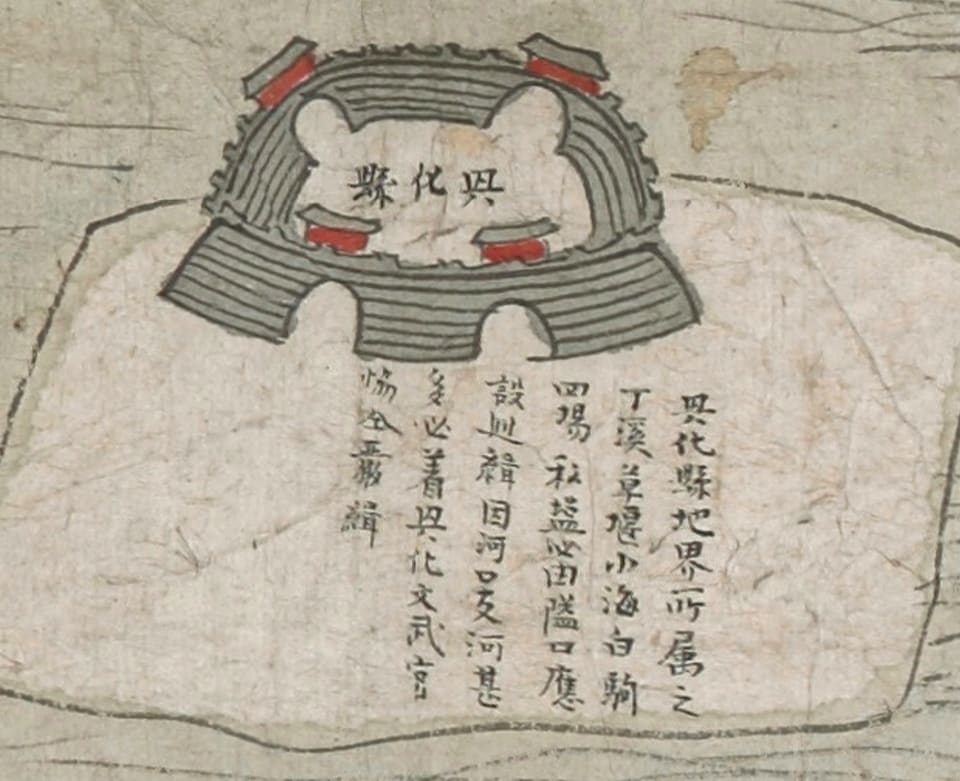 興化縣
興化縣地界所属之
丁溪草堰小海白駒
四場私塩必由隘口應
設巡緝因河口支河甚
多必着興化文武官
恊仝嚴緝